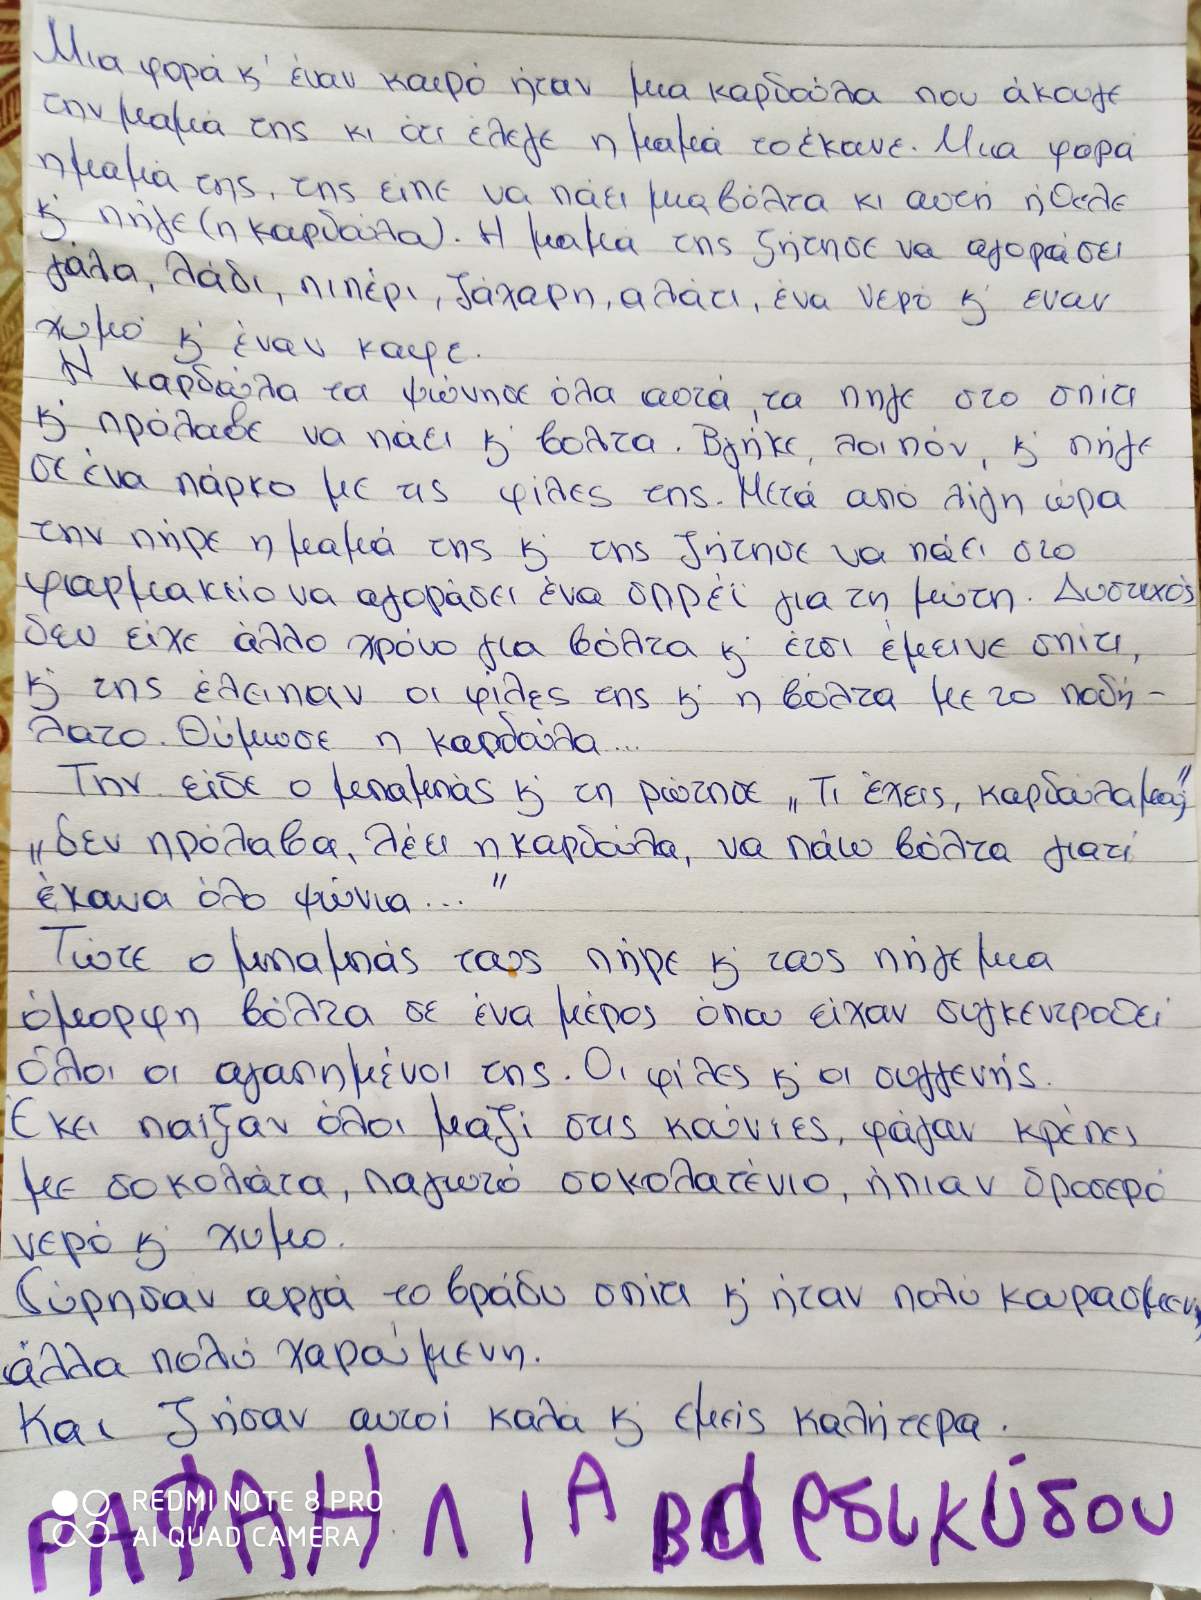 Μια φορά κ' έναν καιρό ήταν μια καρδούλα που άκουγε
την μαμά της κι ότι έλεγε η μαμά το έκανε. Μια φορά
η μαμά της, της είπε να πάει μια βόλτα κι αυτή ήθελε
κ' πήγε (η καρδούλα). Η μαμά της ζήτησε να αγοράσει
γάλα, λάδι, πιπέρι, ζάχαρη, αλάτι, ένα νερό κ' εναν
χυμό κ' έναν καφε.
Η καρδούλα τα ψώνησε όλα αυτά, τα πηγε στο σπίτι
κ' πρόλαβε να πάει κ' βολτα. Βγήκε, λοιπόν, κ' πήγε
σε ένα πάρκο με τις φίλες της. Μετά από λίγη ώρα
την πήρε η μαμά της κ' της ζήτησε να πάει στο
φαρμακείο να αγοράσει ένα σπρέϊ για τη μύτη. Δυστυχός
δεν είχε άλλο χρόνο για βόλτα κ' έτσι έμεινε σπίτι,
κ' της έλειπαν οι φίλες της κ' η βόλτα με το ποδή-
λατο. Θύμωσε η καρδούλα...
Την είδε ο μπαμπάς κ' τη ρώτησε „Τι έχεις, καρδούλα μου;"
„Δεν πρόλαβα, λέει η καρδούλα, να πάω βόλτα γιατί
έκανα όλο ψώνια..."
Τώτε ο μπαμπάς τους πήρε κ' τους πήγε μια
όμορφη βόλτα σε ένα μέρος όπου είχαν συγκεντροθεί
όλοι οι αγαπημένοι της. Οι φίλες κ' οι συγγενής.
Εκεί παίζαν όλοι μαζί στις κούνιες, φάγαν κρέπες
με σοκολάτα, παγωτό σοκολατένιο, ήπιαν δροσερό
νερό κ' χυμο.
Γύρησαν αργά το βράδυ σπίτι κ' ήταν πολύ κουρασμενη,
άλλα πολύ χαρούμενη.
Και ζήσαν αυτοί καλά κ' εμείς καλήτερα.
ΡΑΦΑΗΛΙΑ Βουρδουκύδου
REDMI NOTE 8 PRO
AI QUAD CAMERA